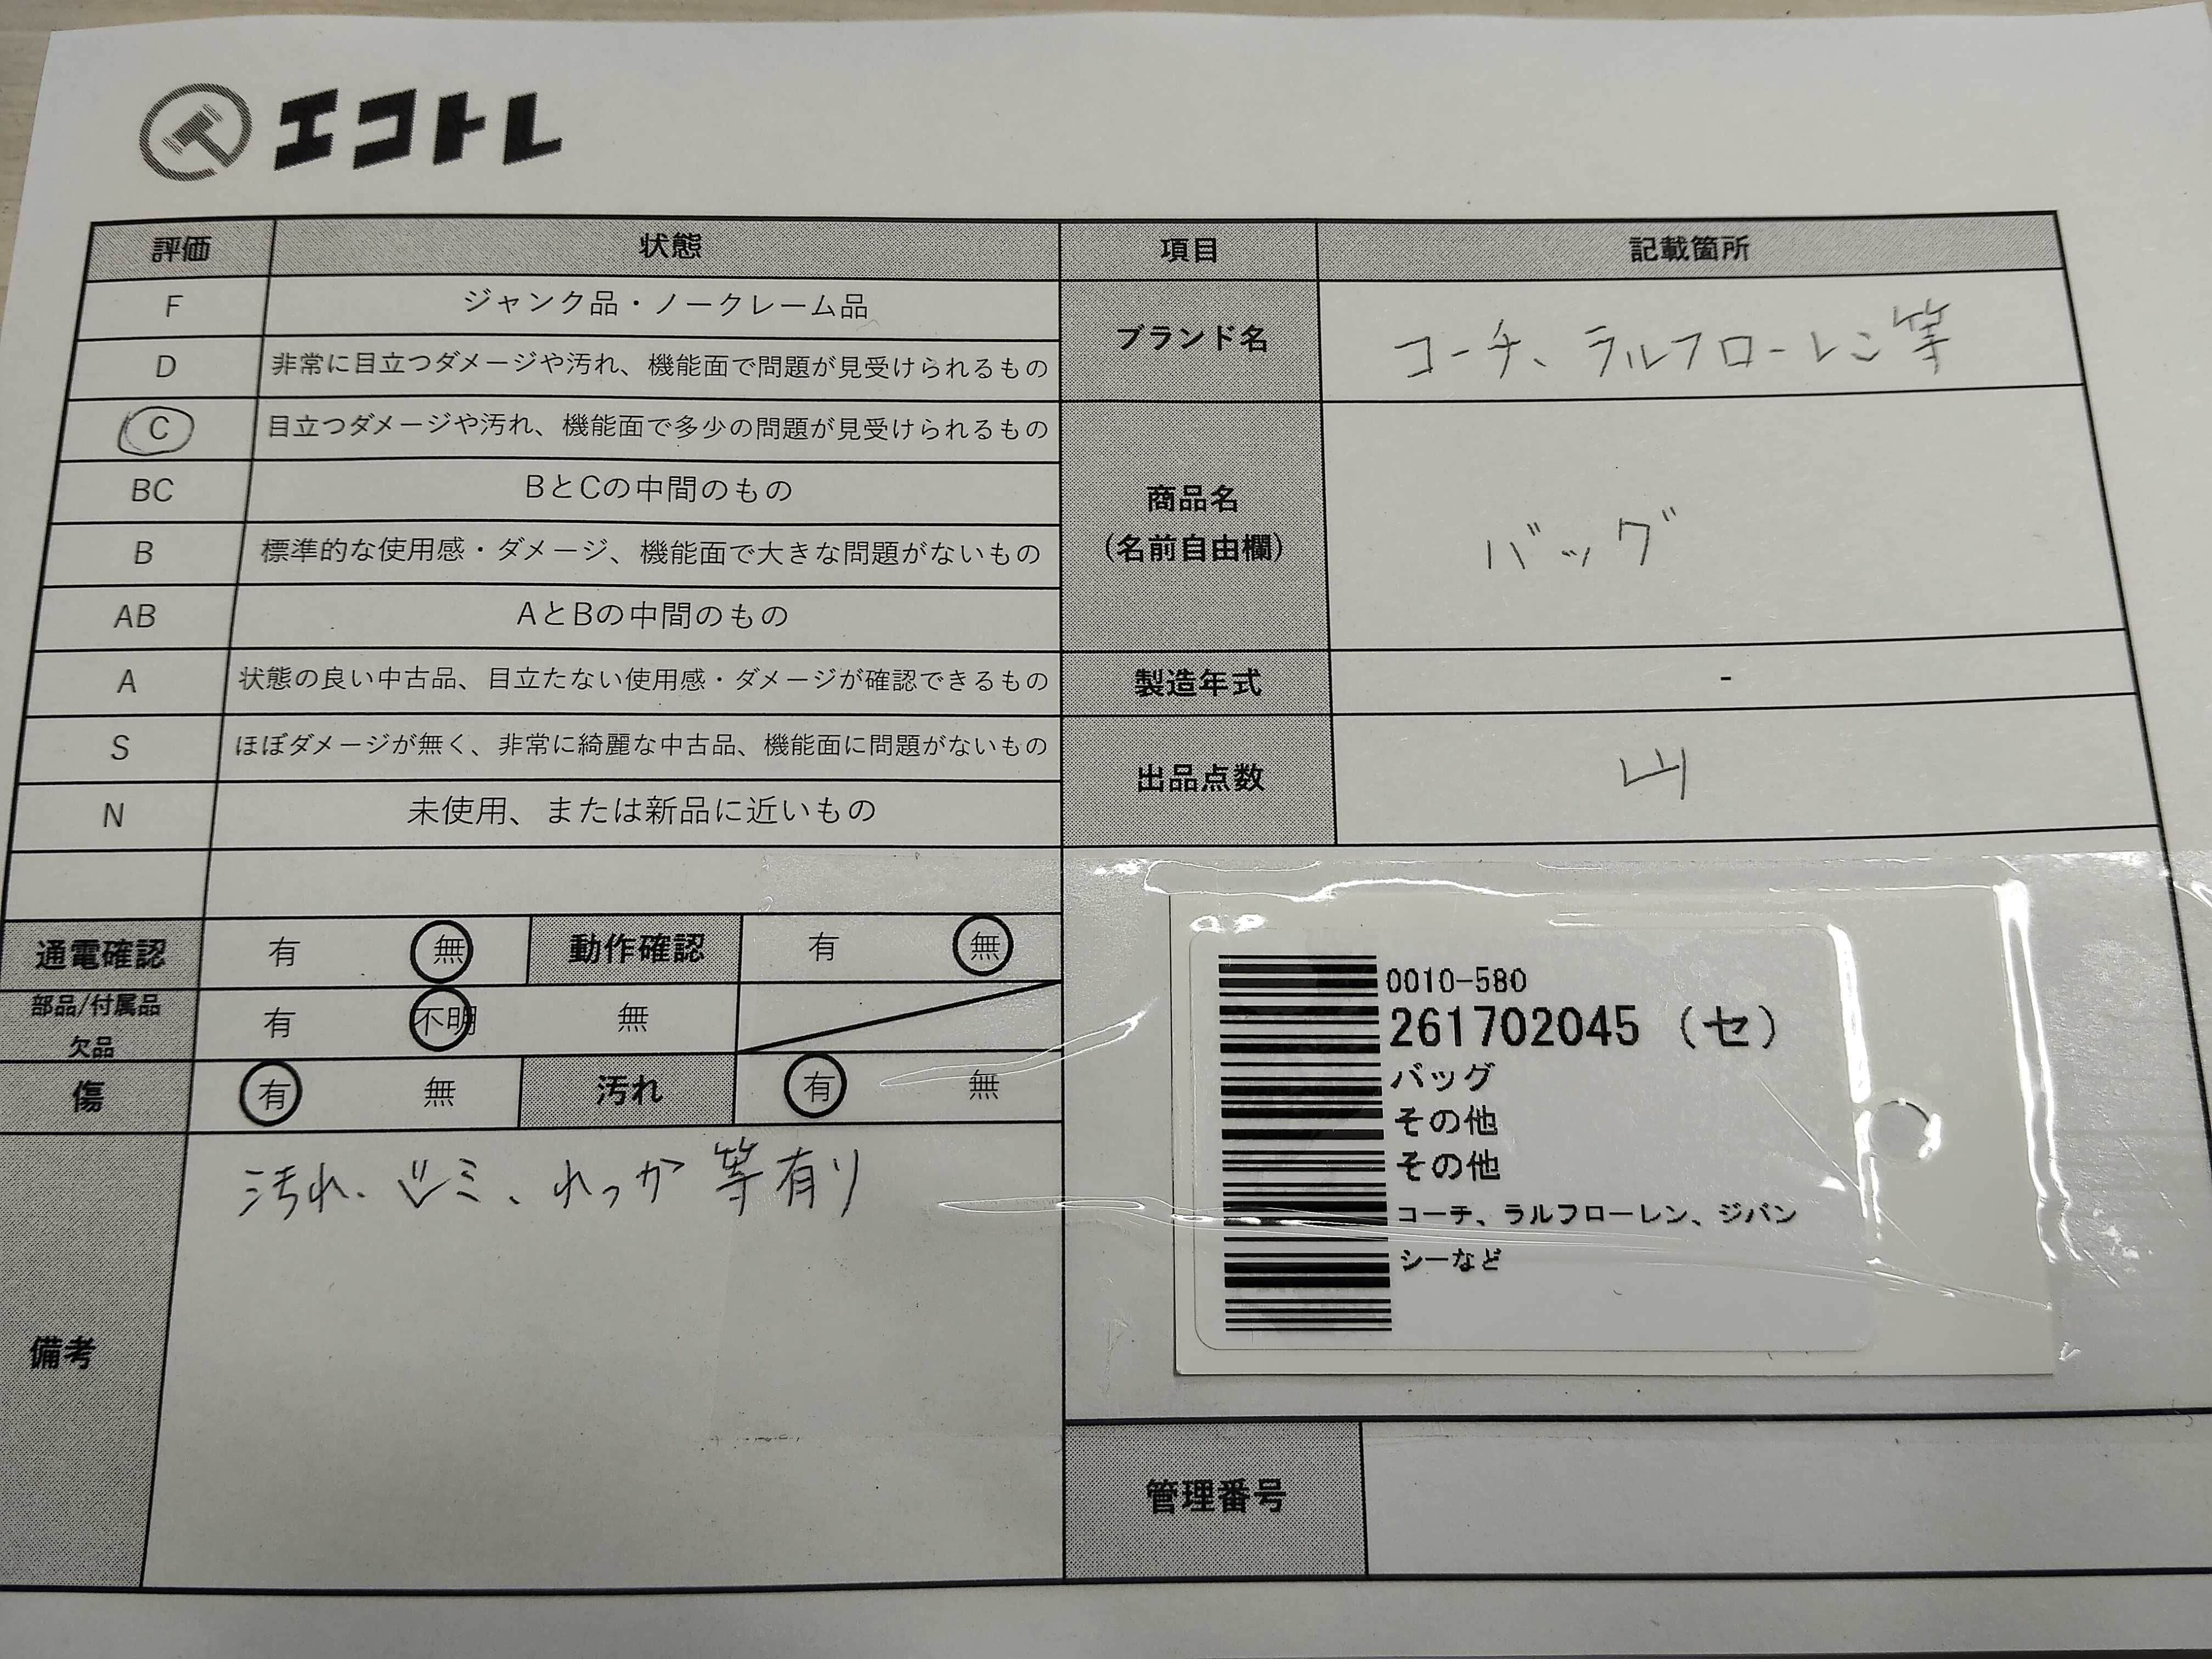 エコトレ
評価 状態 項目 記載箇所
F ジャンク品・ノークレーム品
D 非常に目立つダメージや汚れ、機能面で問題が見受けられるもの
C 目立つダメージや汚れ、機能面で多少の問題が見受けられるもの
BC BとCの中間のもの
B 標準的な使用感・ダメージ、機能面で大きな問題がないもの
AB AとBの中間のもの
A 状態の良い中古品、目立たない使用感・ダメージが確認できるもの
S ほぼダメージが無く、非常に綺麗な中古品、機能面に問題がないもの
N 未使用、または新品に近いもの
ブランド名 コーチ、ラルフローレン等
商品名
(名前自由欄) バッグ
製造年式 -
出品点数 山
通電確認 有 無 動作確認 有 無
部品/付属品
欠品 有 不明 無
傷 有 無 汚れ 有 無
備考 汚れ、シミ、れっか等有り
0010-580
261702045 (セ)
バッグ
その他
その他
コーチ、ラルフローレン、ジバン
シーなど
管理番号